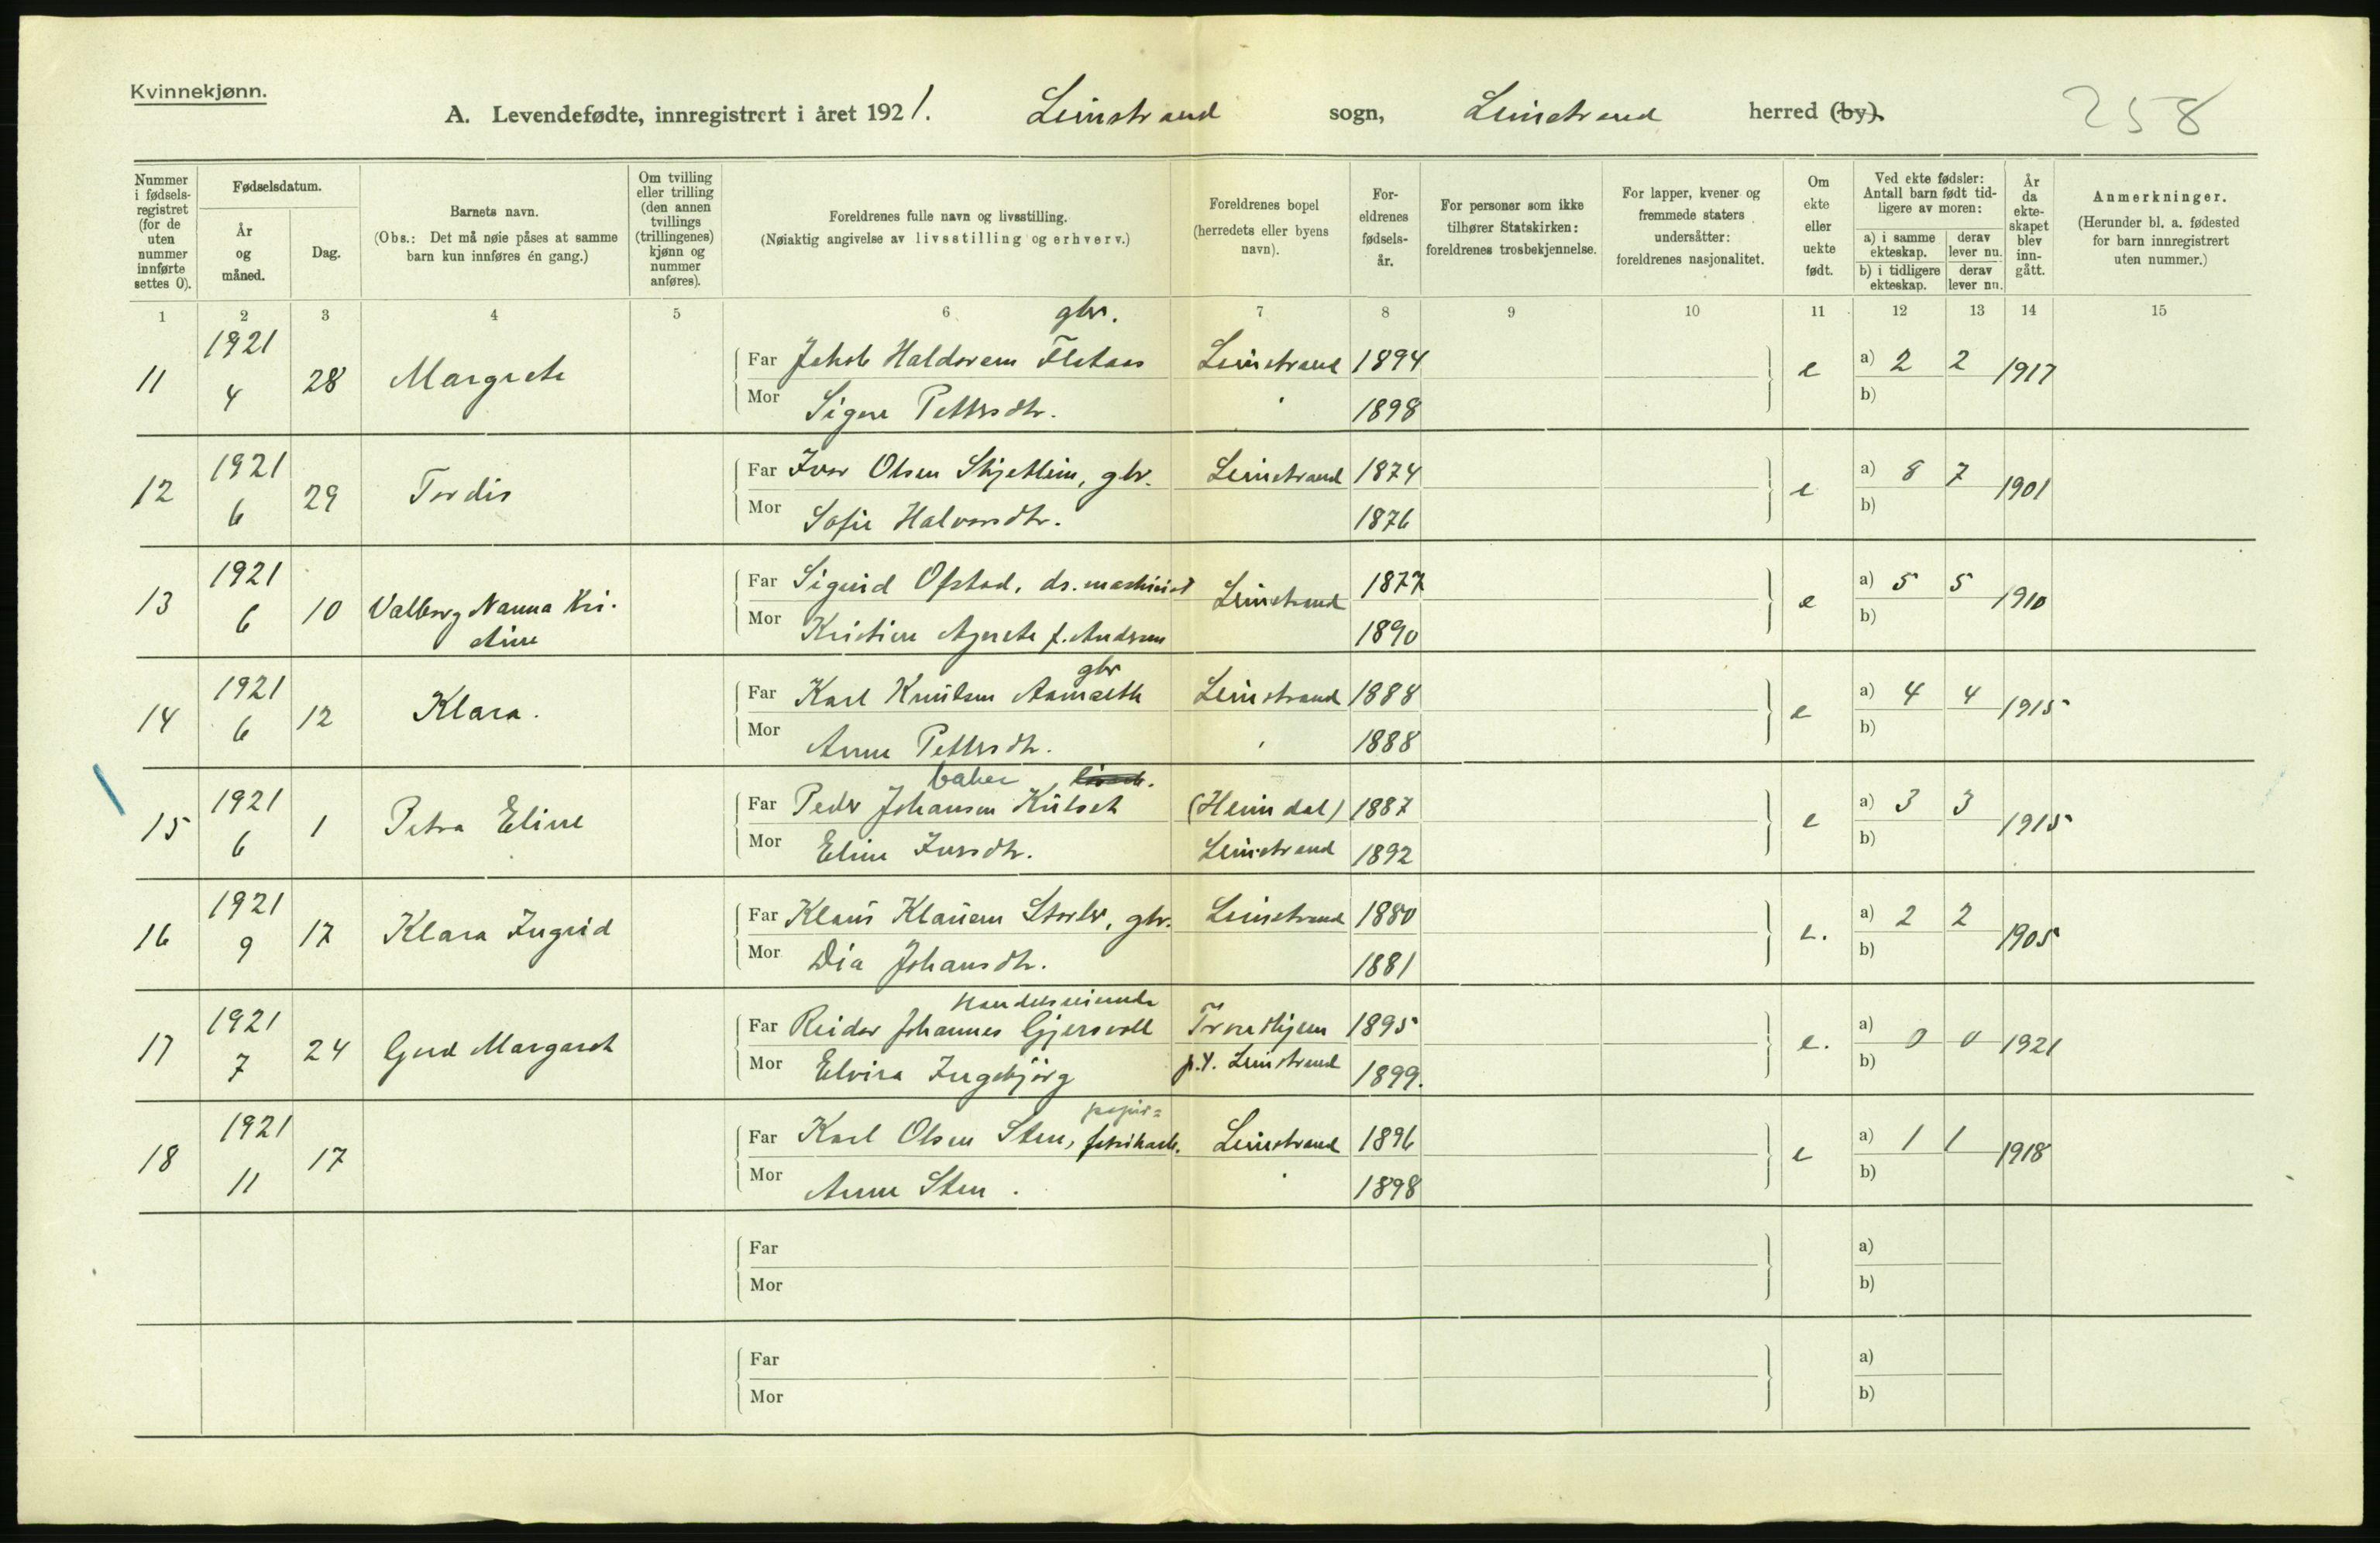 Kvinnekjønn.
A. Levendefødte, innregistrert i året 1921. Leinstrand sogn, Leinstrand herred (by). 258
Nummer i fødsels-registret (for de uten nummer innførte settes 0).
Fødselsdatum.
År og måned.
Dag.
Barnets navn.
(Obs.: Det må nøie påses at samme barn kun innføres én gang.)
Om tvilling eller trilling (den annen tvillings (trillingenes) kjønn og nummer anføres).
Foreldrenes fulle navn og livsstilling.
(Nøiaktig angivelse av livsstilling og erhverv.)
Foreldrenes bopel (herredets eller byens navn).
For-eldrenes fødsels-år.
For personer som ikke tilhører Statskirken: foreldrenes trosbekjennelse.
For lapper, kvener og fremmede staters undersåtter: foreldrenes nasjonalitet.
Om ekte eller uekte født.
Ved ekte fødsler: Antall barn født tid-ligere av moren:
a) i samme ekteskap. derav lever nu.
b) i tidligere ekteskap. derav lever nu.
År da ekte-skapet blev inn-gått.
Anmerkninger.
(Herunder bl. a. fødested for barn innregistrert uten nummer.)
1 2 3 4 5 6 7 8 9 10 11 12 13 14 15
gbr.
11 1921 4 28 Margrete Far Jakob Haldorsen Flataas Leinstrand 1894 e a) 2 2 1917
Mor Signe Pettersdtr. 1898 b)
12 1921 6 29 Tordis Far Ivar Olsen Skjetlein, gbr. Leinstrand 1874 e a) 8 7 1901
Mor Sofie Halvorsdtr. 1876 b)
13 1921 6 10 Valborg Nanna Kri- Far Sigurd Ofstad, ds. maskinist Leinstrand 1877 e a) 5 5 1910
stine Mor Kristine Agnete f. Andersen 1890 b)
gbr
14 1921 6 12 Klara. Far Karl Knutsen Leinstrand 1888 e a) 4 4 1915
Mor Anne Pettersdtr. 1888 b)
baker
15 1921 6 1 Petra Eline Far Peder Johansen (Heimdal) 1887 e a) 3 3 1915
Mor Eline Leinstrand 1892 b)
16 1921 9 17 Klara Ingrid Far Klaus Klausen Storler, gbr. Leinstrand 1880 e. a) 2 2 1905
Mor Dia Johansdtr. 1881 b)
Handelsreisende
17 1921 7 24 Gerd Margaret Far Reidar Johannes Gjersvoll Trondhjem 1895 e. a) 0 0 1921
Mor Elvira Ingebjörg p.t. Leinstrand 1899. b)
papir-
18 1921 11 17 Far Karl Olsen Sten, fabrikarb. Leinstrand 1896 e a) 1 1 1918
Mor Anne Sten. 1898 b)
Far a)
Mor b)
Far a)
Mor b)